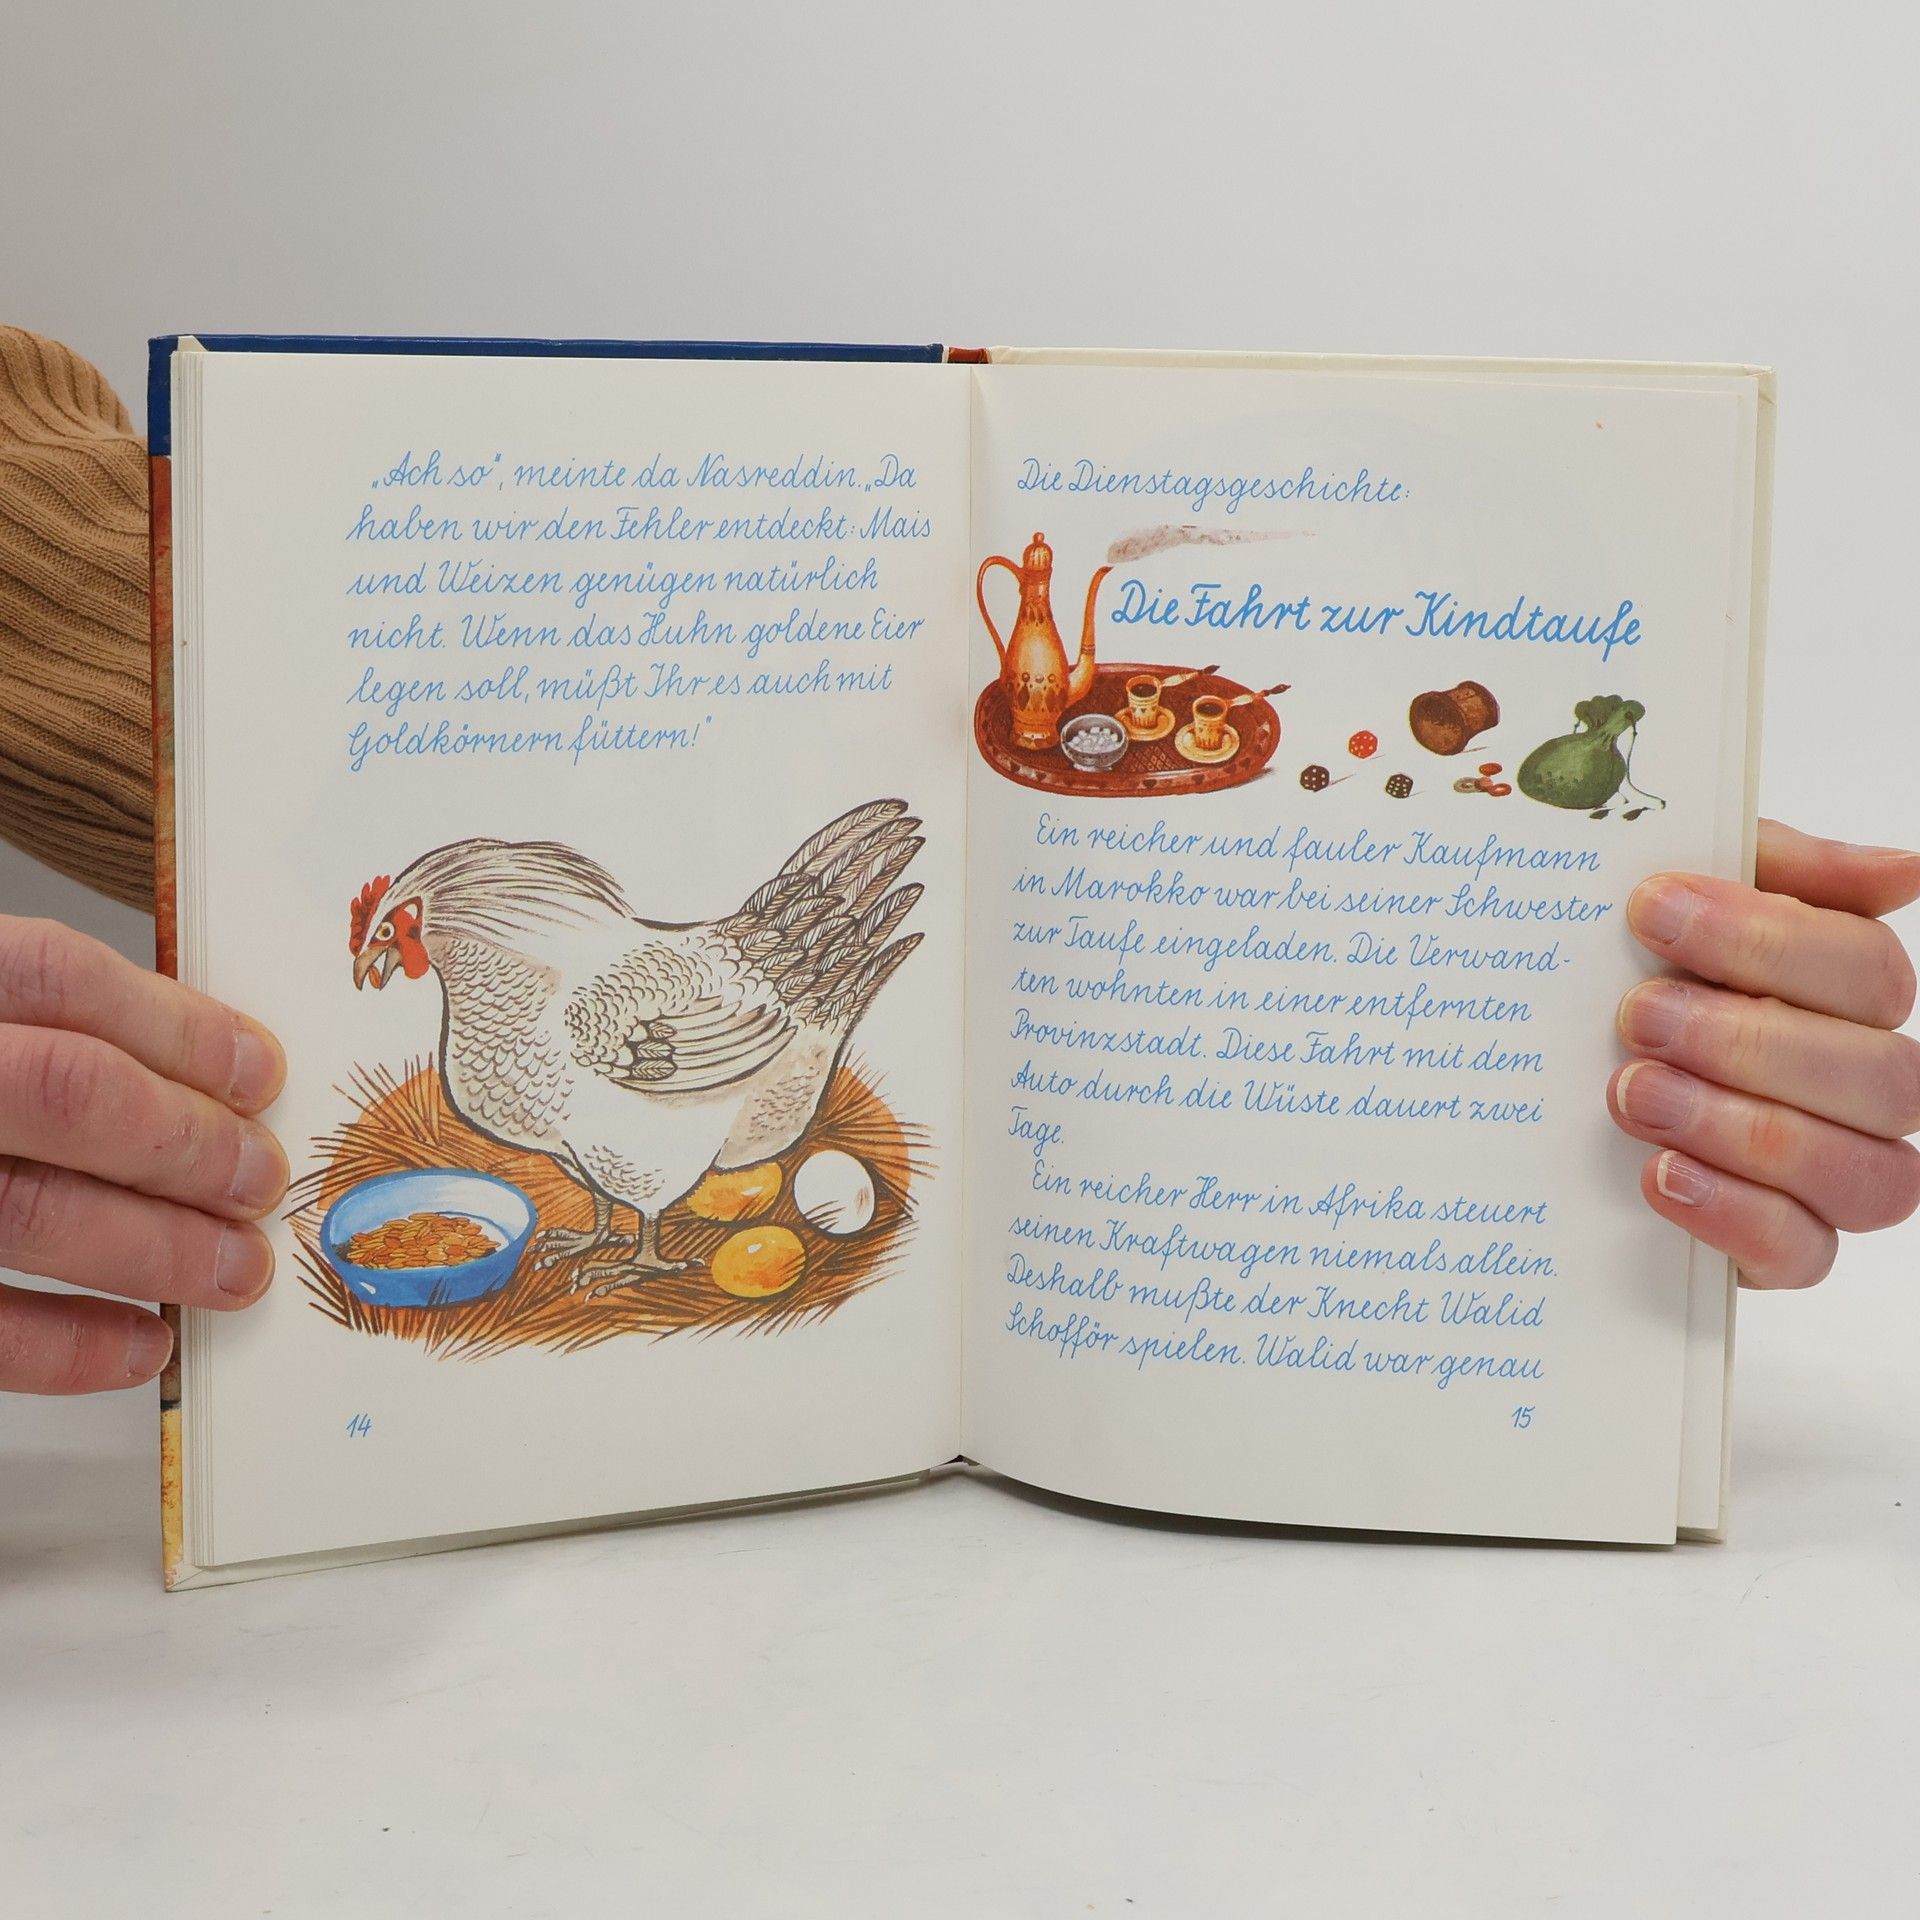 „Ach so“, meinte da Nasreddin. „Da
haben wir den Fehler entdeckt: Mais
und Weizen genügen natürlich
nicht. Wenn das Huhn goldene Eier
legen soll, müßt Ihr es auch mit
Goldkörnern füttern!“
14
Die Dienstagsgeschichte:
Die Fahrt zur Kindtaufe
Ein reicher und fauler Kaufmann
in Marokko war bei seiner Schwester
zur Taufe eingeladen. Die Verwand-
ten wohnten in einer entfernten
Provinzstadt. Diese Fahrt mit dem
Auto durch die Wüste dauert zwei
Tage.
Ein reicher Herr in Afrika steuert
seinen Kraftwagen niemals allein.
Deshalb mußte der Knecht Walid
Schofför spielen. Walid war genau
15